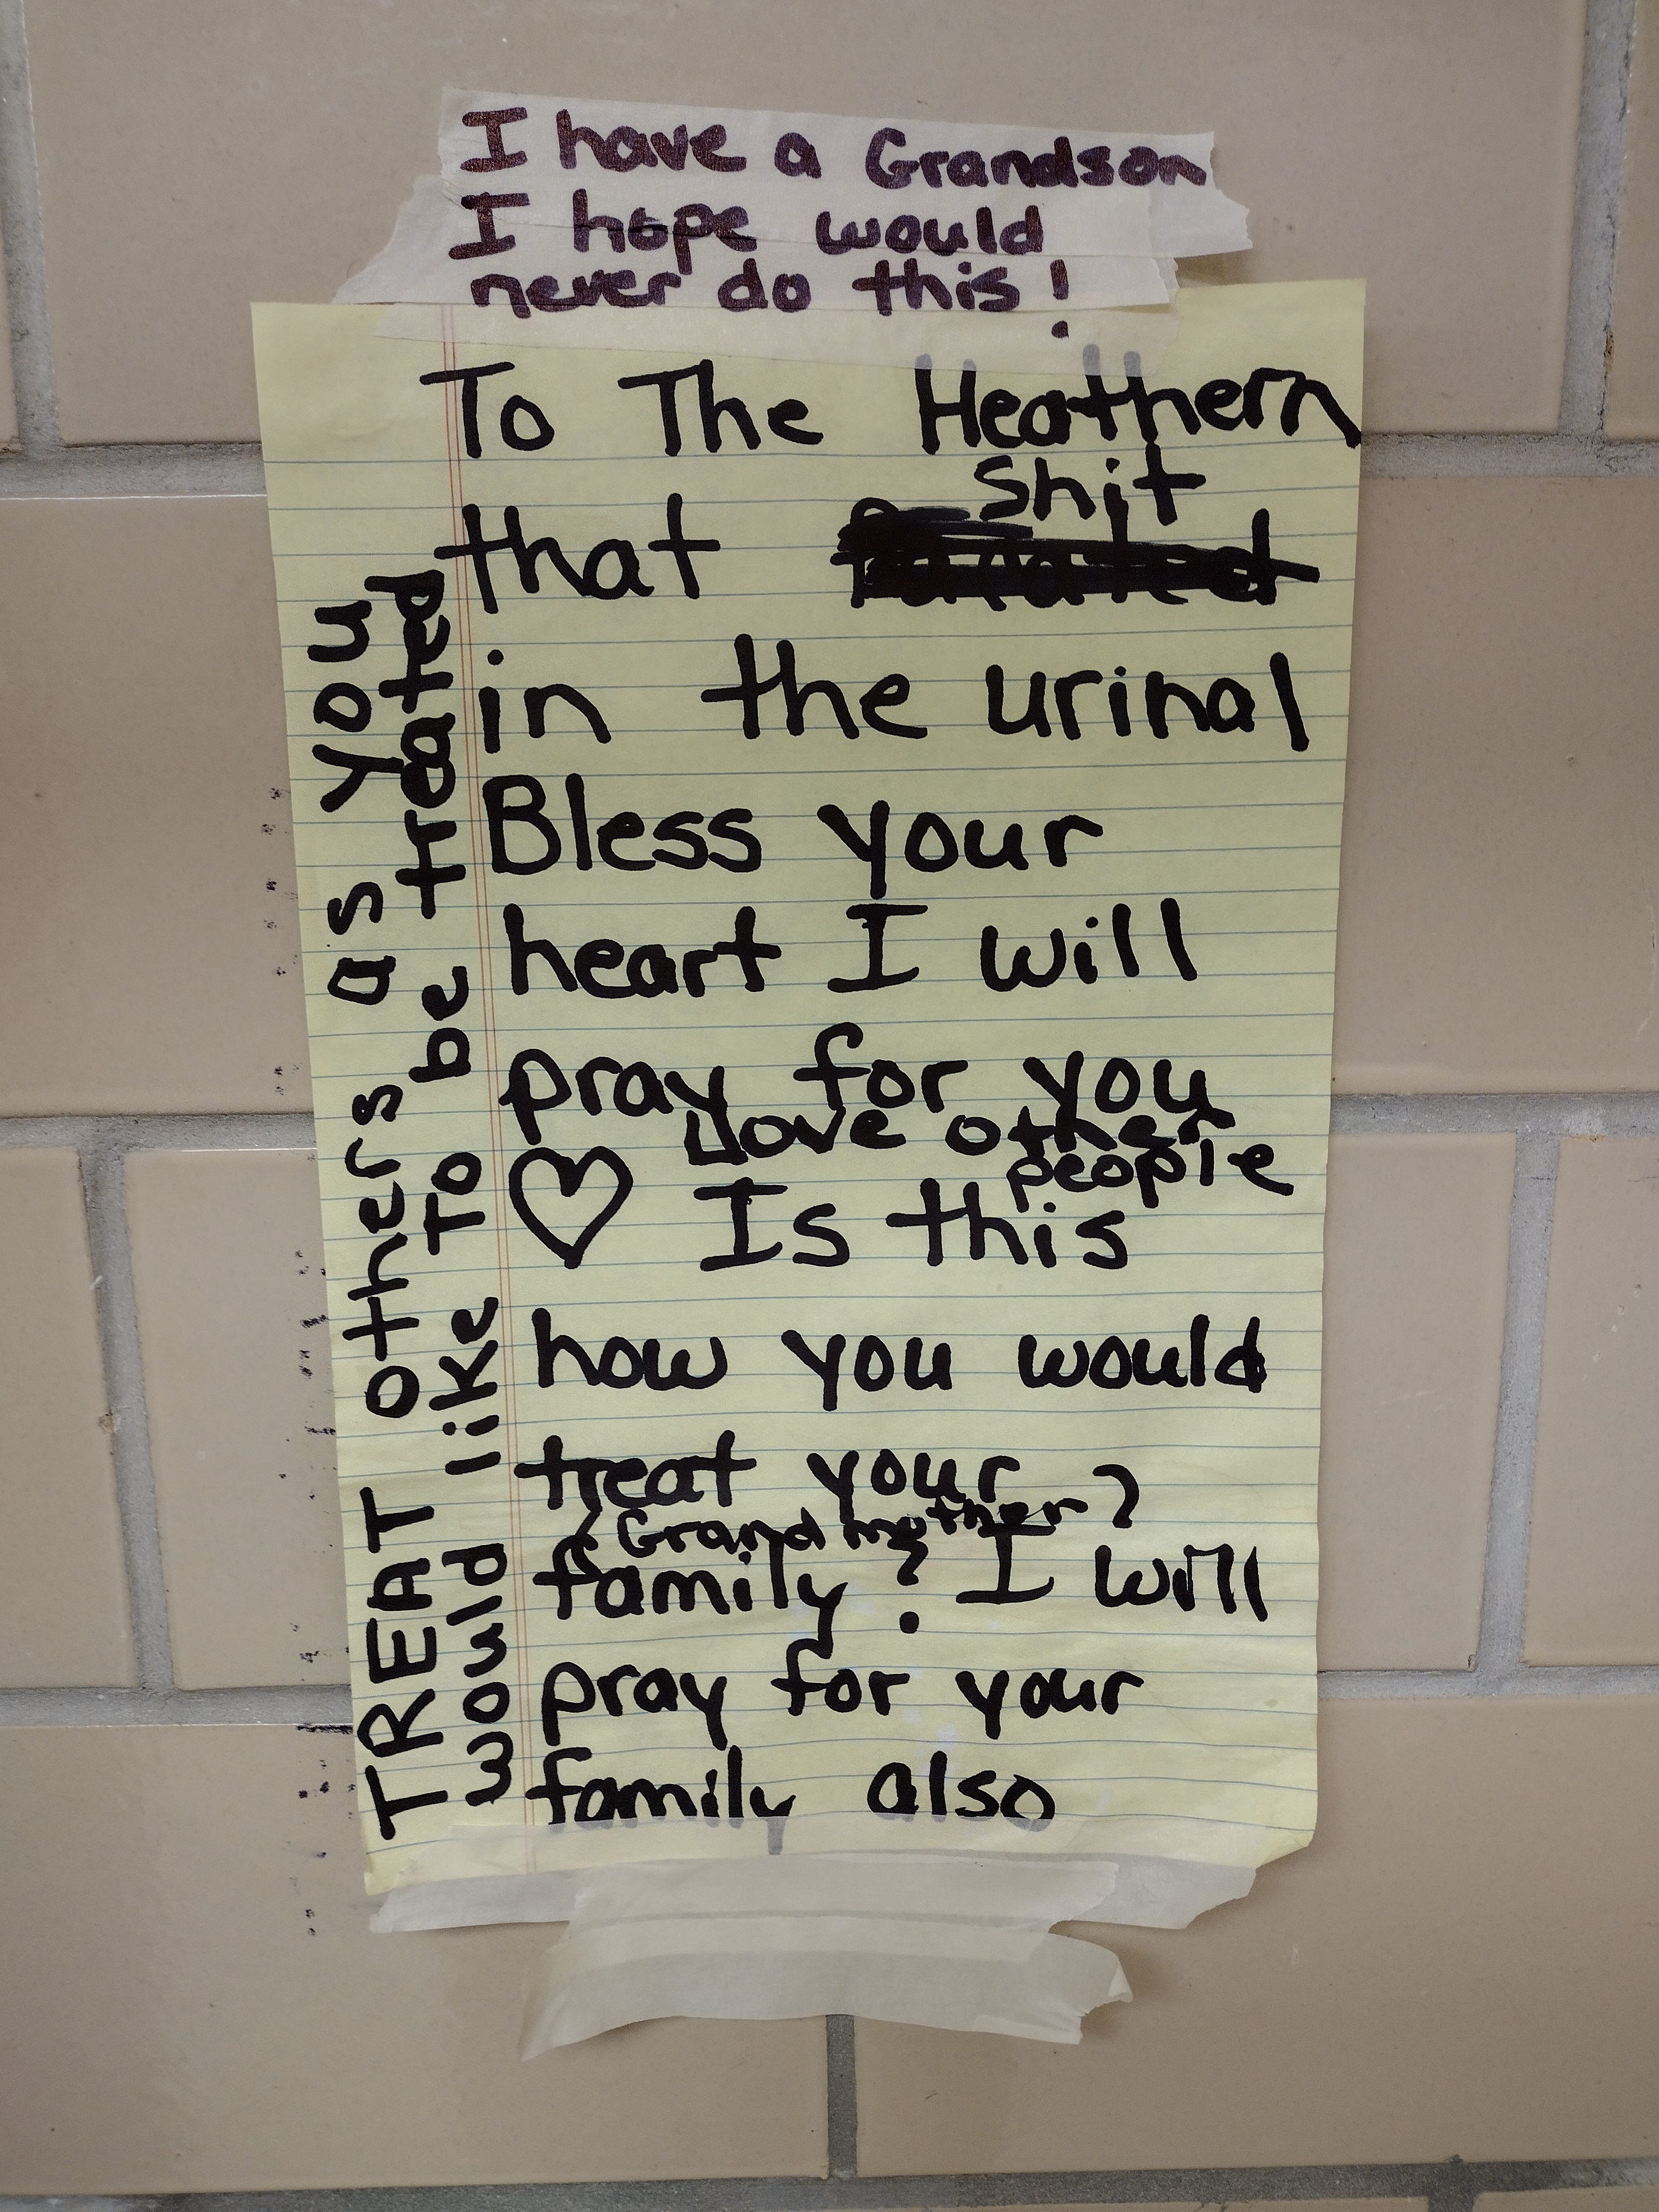 I have a Grandson
I hope would
never do this!
To The Heathern
Shit
that
in the urinal
Bless your
heart I will
pray for you
Love other
people
♡ Is this
how you would
treat your
Grandmother?
family? I will
pray for your
family also
TREAT others as you
would like To be trated